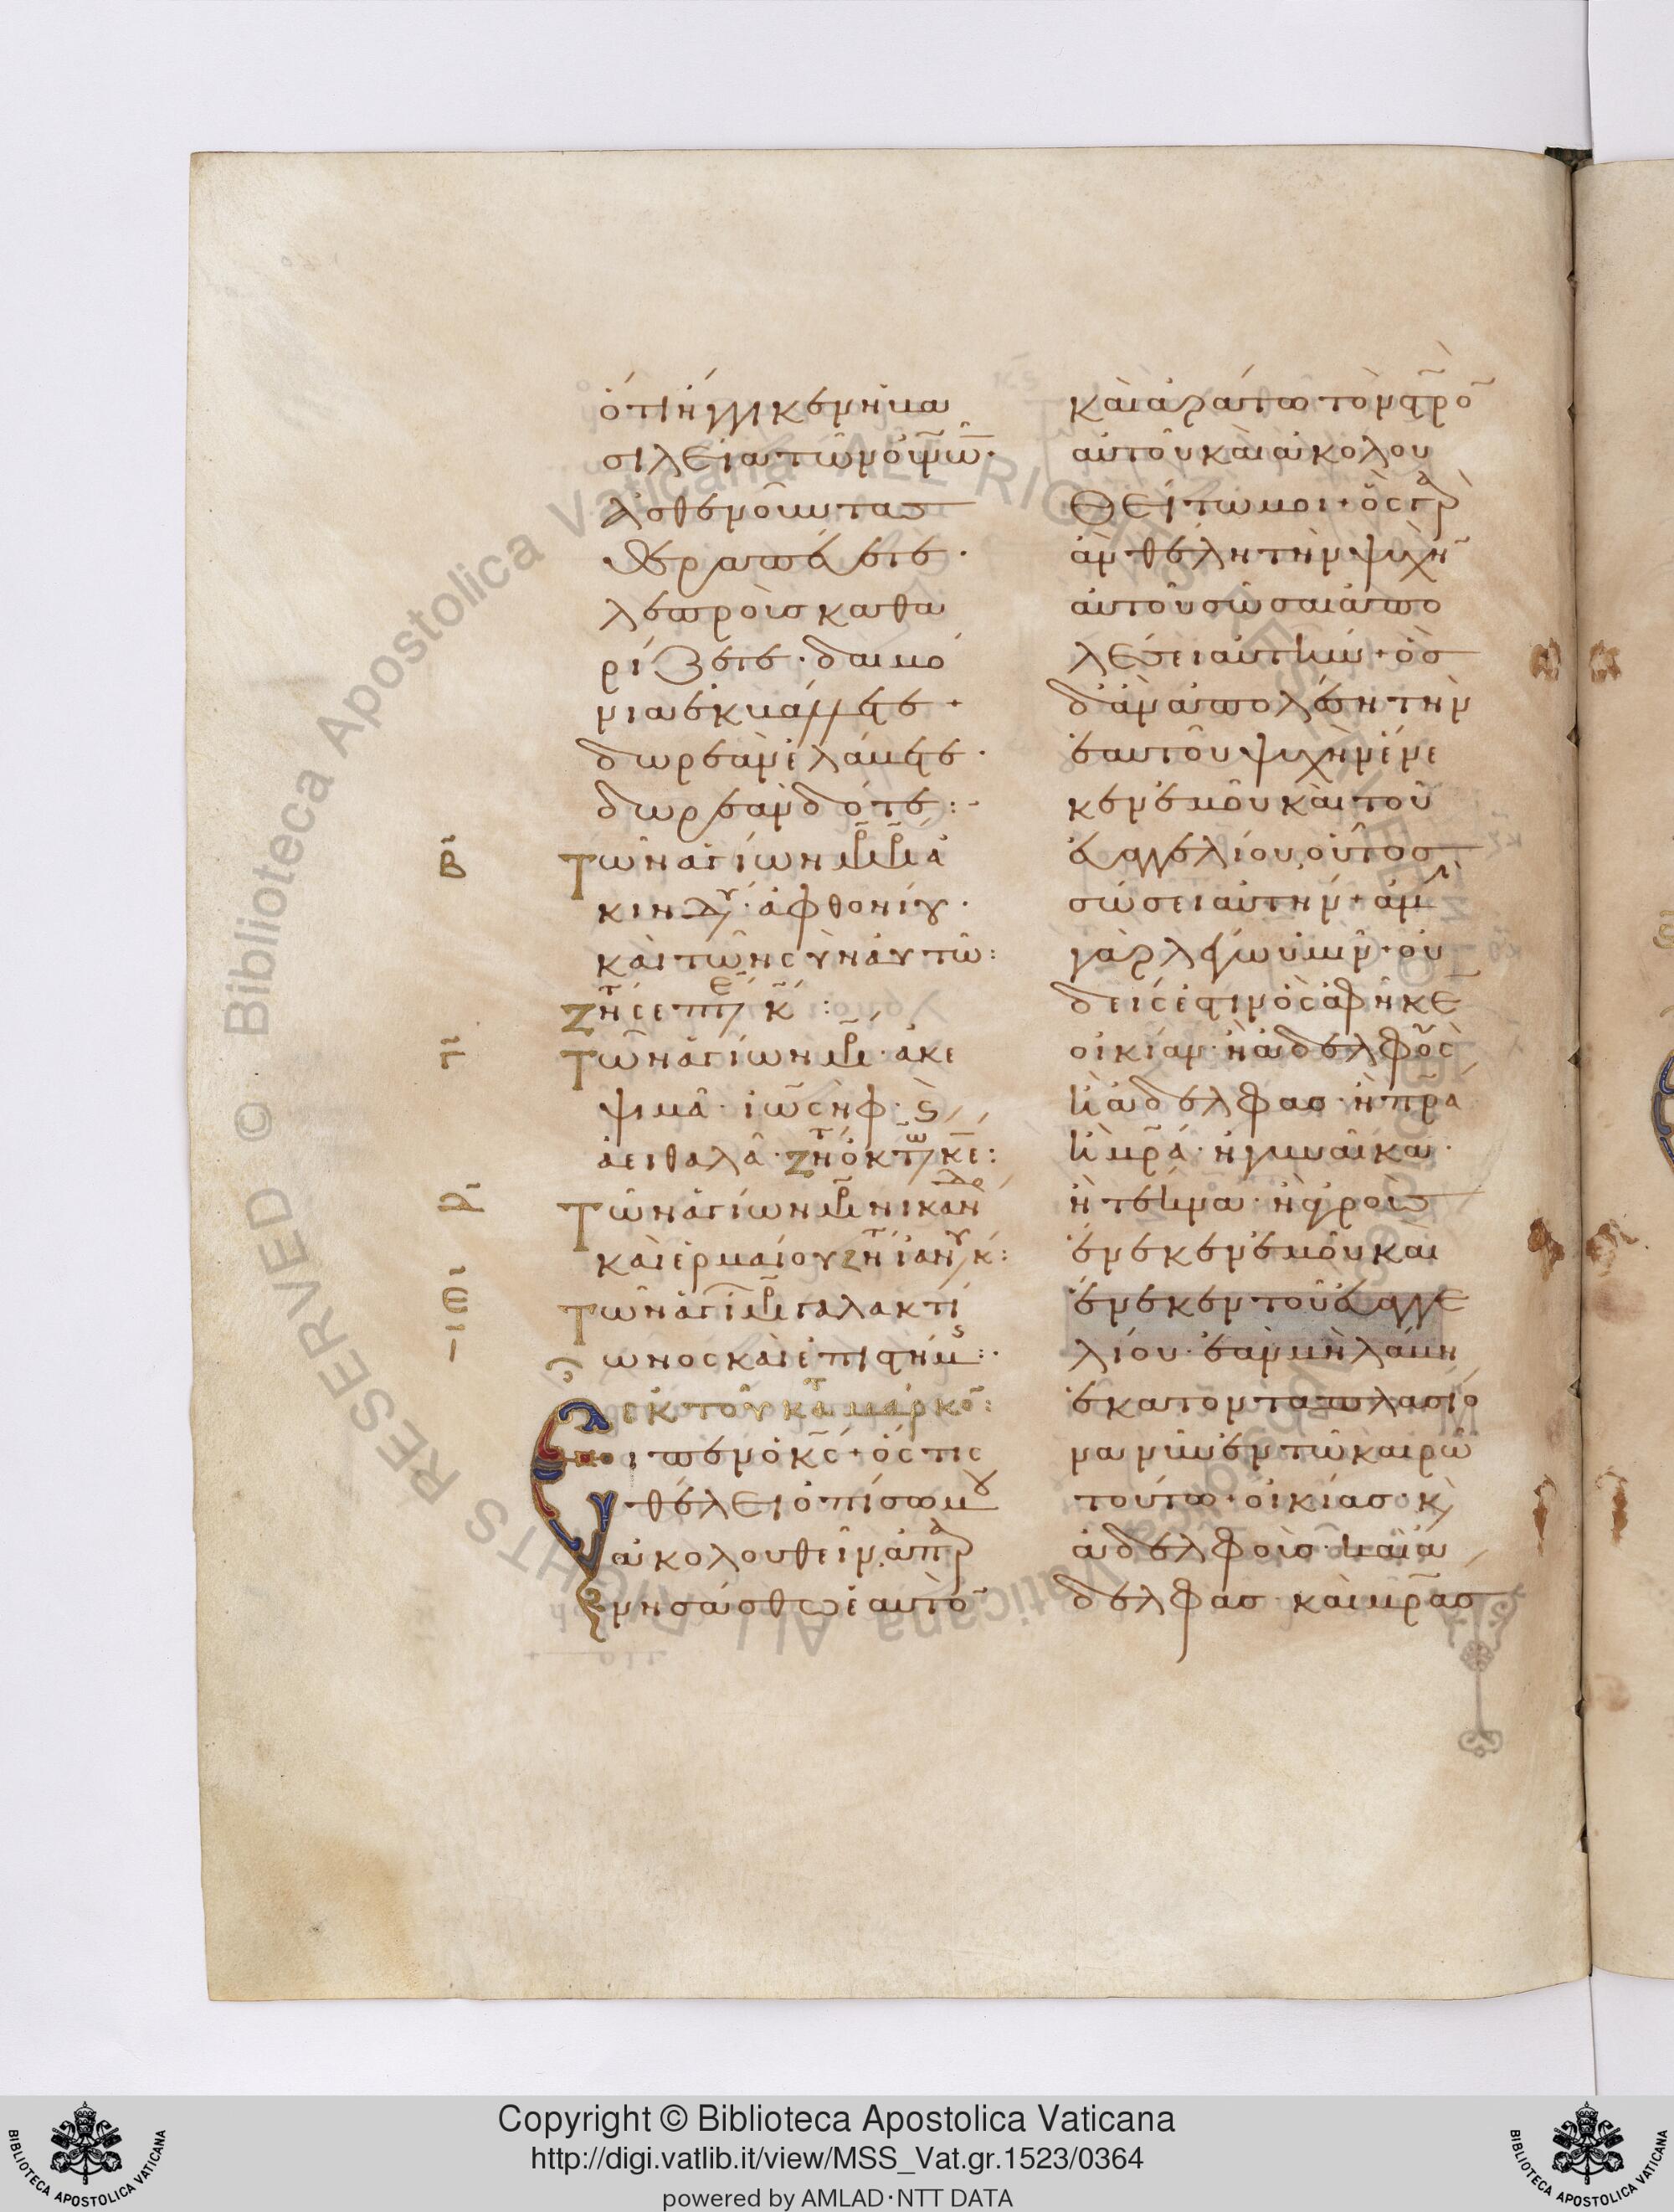 ὅτι ἤγγικεν ἡ βα
σιλεία τῶν οὐνῶν·
ἀσθενοῦντας
θεραπεύετε·
λεπροὺς καθα
ρίζετε· δαιμό
νια ἐκβάλλετε·
δωρεὰν ἐλάβετε·
δωρεὰν δότε:
Β
Τῶν ἁγίων μμ ἀ
κινδυ· ἀφθονίου·
καὶ τῶν σὺν αὐτῶ:
ζητ σεπτε κ:
Γ
Τῶν ἁγίων μ· ἀκε
ψιμᾶ· ἰωσὴφ· ϛ
ἀειθαλᾶ· ζητ ὀκτω κε:
Δ
Τῶν ἁγίων μ νικάνδ
καὶ ἑρμαίου ζητ ἰανου κ:
Ε
Τῶν ἁγί μ γαλακτί
ωνος καὶ ἐπιστήμ:
ἐκ τοῦ κατ μάρκον:
Εἶπεν ὁ κς· ὅστις
θέλει ὀπίσω μου
ἀκολουθεῖν ἀπαρ
νησάσθω ἑαυτὸν
καὶ ἀράτω τὸν στρον
αὐτοῦ καὶ ἀκολου
θείτω μοι· ὃς γὰρ
ἂν θέλη τὴν ψυχὴν
αὐτοῦ σῶσαι ἀπο
λέσει αὐτὴν· ὃς
δ' ἂν ἀπολέση τὴν
ἑαυτοῦ ψυχὴν ἕνε
κεν ἐμοῦ καὶ τοῦ
εὐαγγελίου οὗτος
σώσει αὐτήν· ἀμὴν
γὰρ λέγω ὑμῖν· οὐ
δείς ἐστιν ὃς ἀφῆκε
οἰκίαν· ἢ ἀδελφοὺς
ἢ ἀδελφας· ἢ πρα
ἢ μρα· ἢ γυναῖκα·
ἢ τέκνα· ἢ ἀγροὺς
ἕνεκεν ἐμοῦ καὶ
ἕνεκεν τοῦ εὐαγγε
λίου· ἐὰν μὴ λάβη
ἑκατονταπλασίο
να νῦν ἐν τῶ καιρῶ
τούτω· οἰκίας· κ
ἀδελφοὺς· καὶ ἀ
δελφας· καὶ μρας
Copyright © Biblioteca Apostolica Vaticana
http://digi.vatlib.it/view/MSS_Vat.gr.1523/0364
powered by AMLAD·NTT DATA
BIBLIOTECA APOSTOLICA VATICANA
BIBLIOTECA APOSTOLICA VATICANA
© Biblioteca Apostolica Vaticana ALL RIGHTS RESERVED